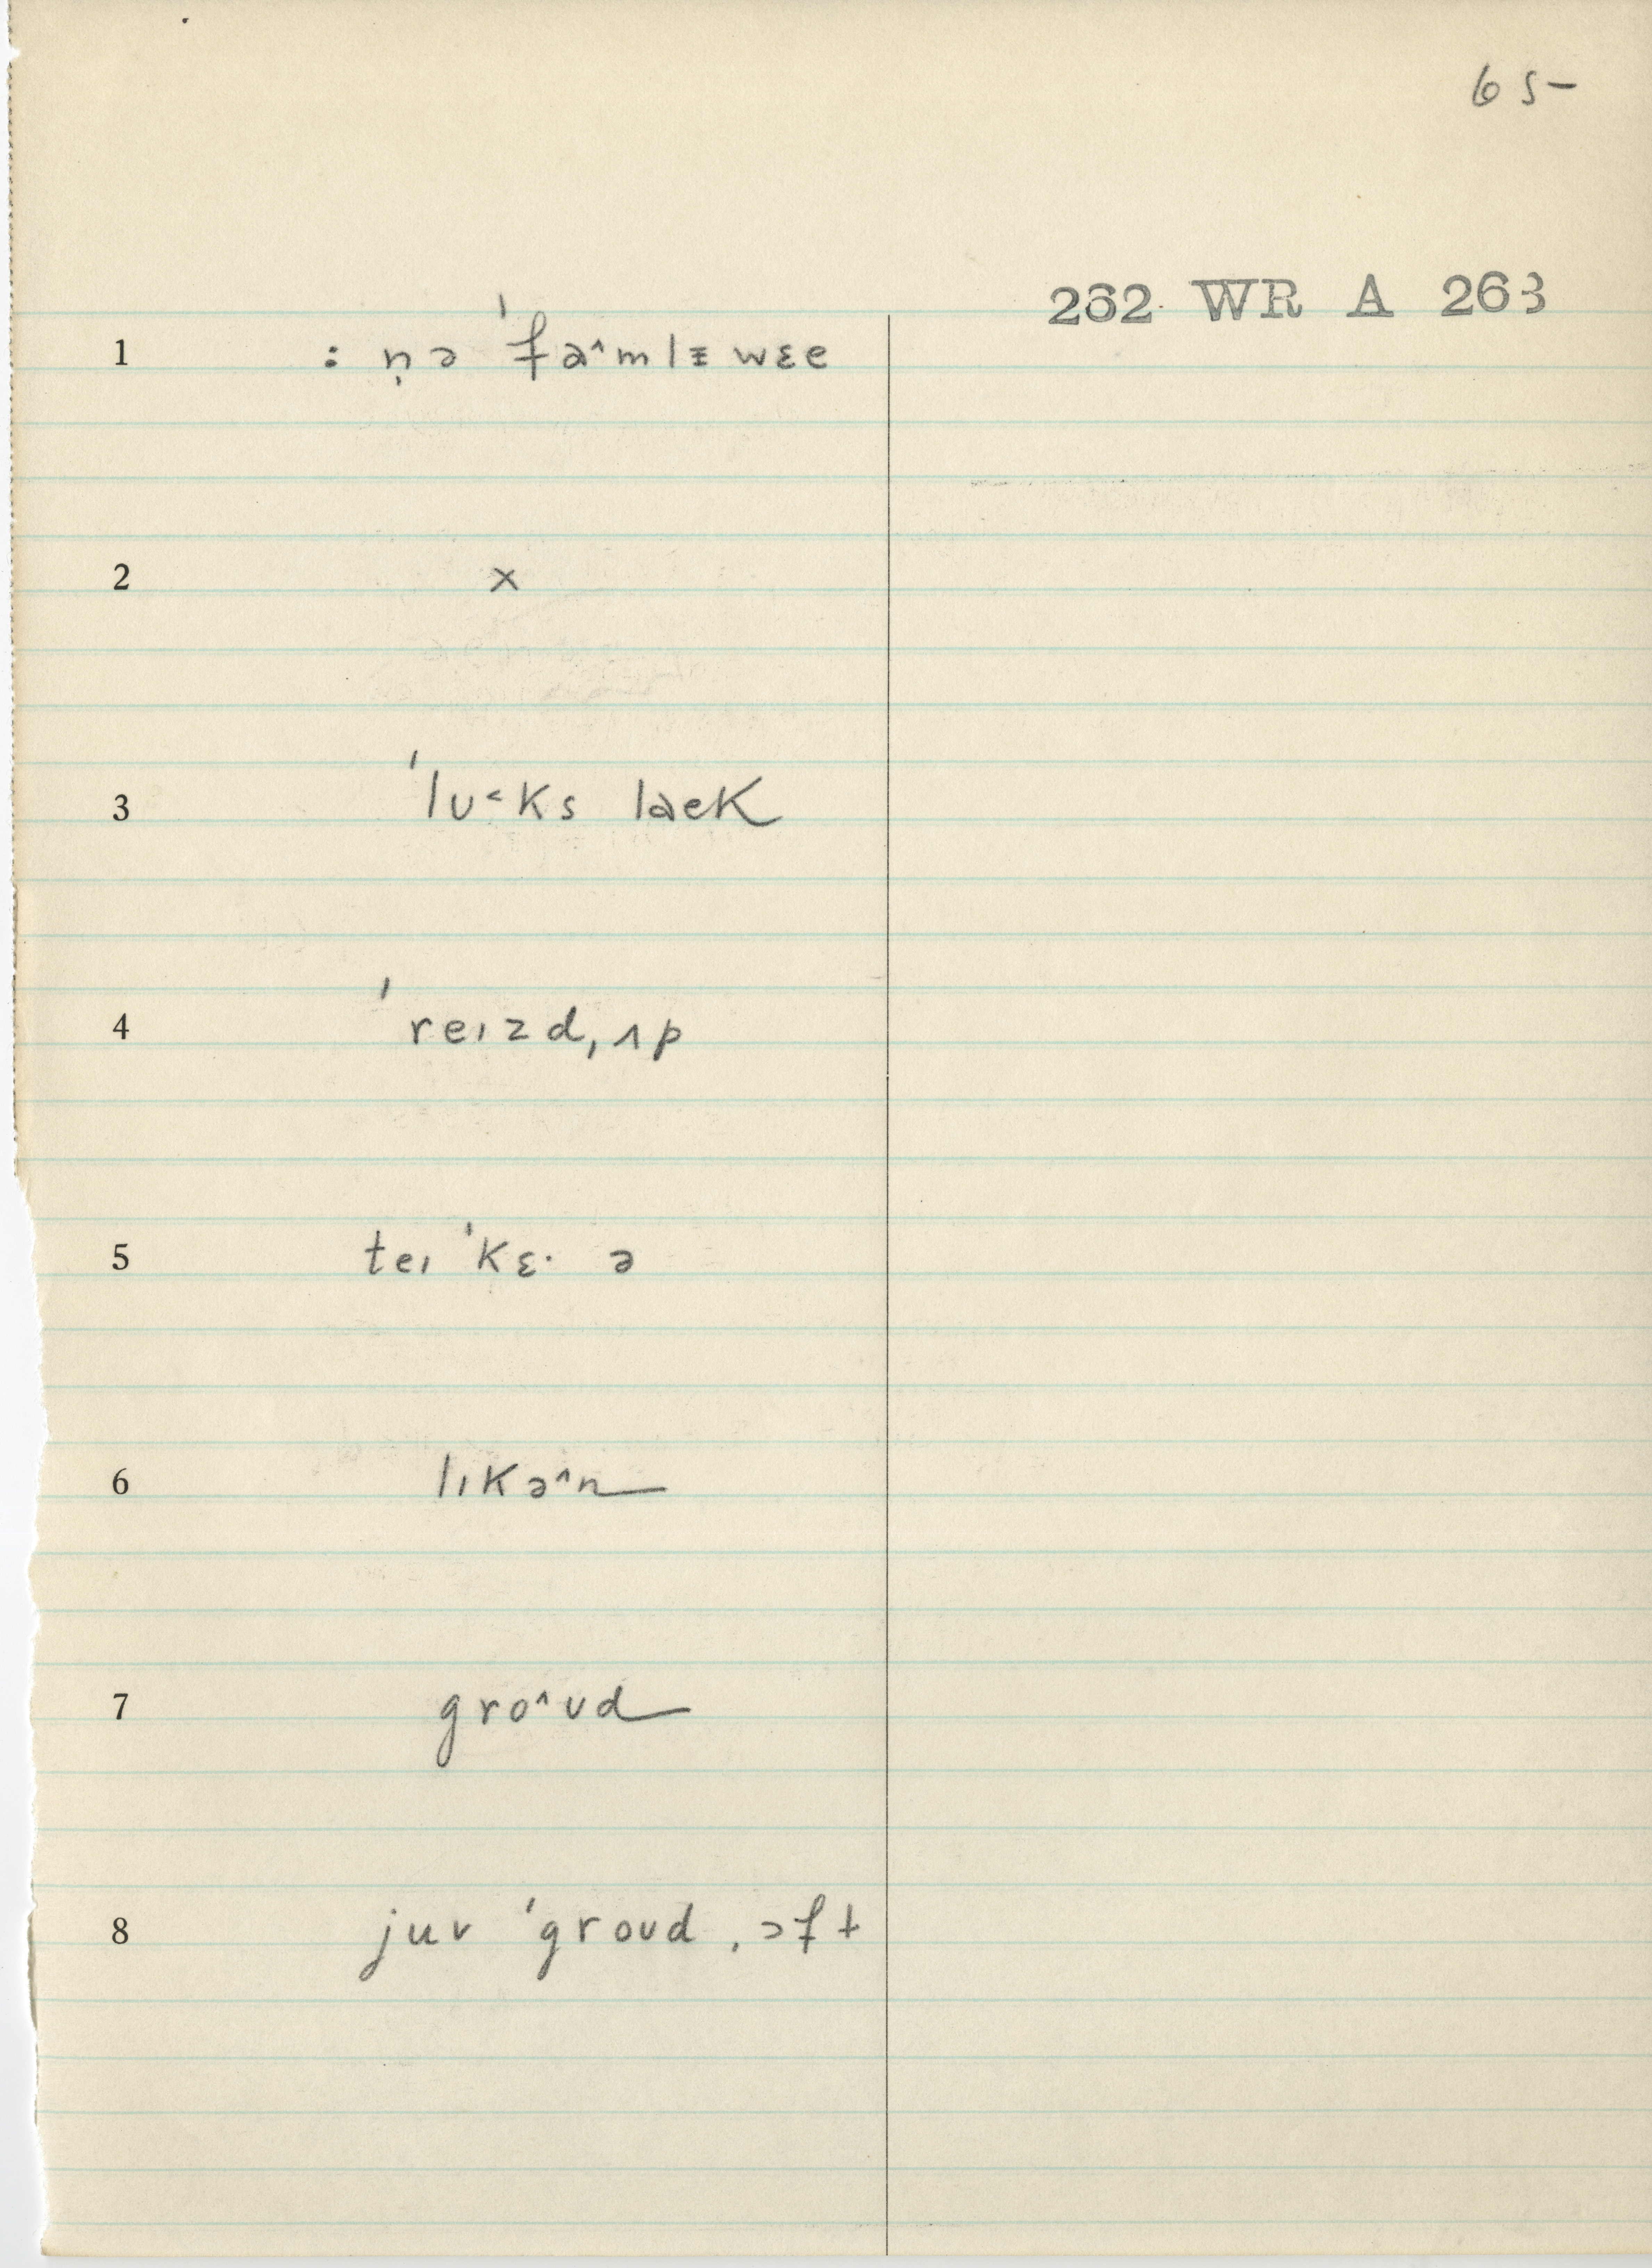 65-
262 WR A 263
1 : ṇə ˈfə^mlɪ wɛe
2 x
3 ˈlʊ˂ks laeK
4 ˈreɪzd ˌʌp
5 teɪ ˈKɛ· ə
6 lɪKə^n
7 gro^ʊd
8 juʊ ˈgroʊd ˌɔft